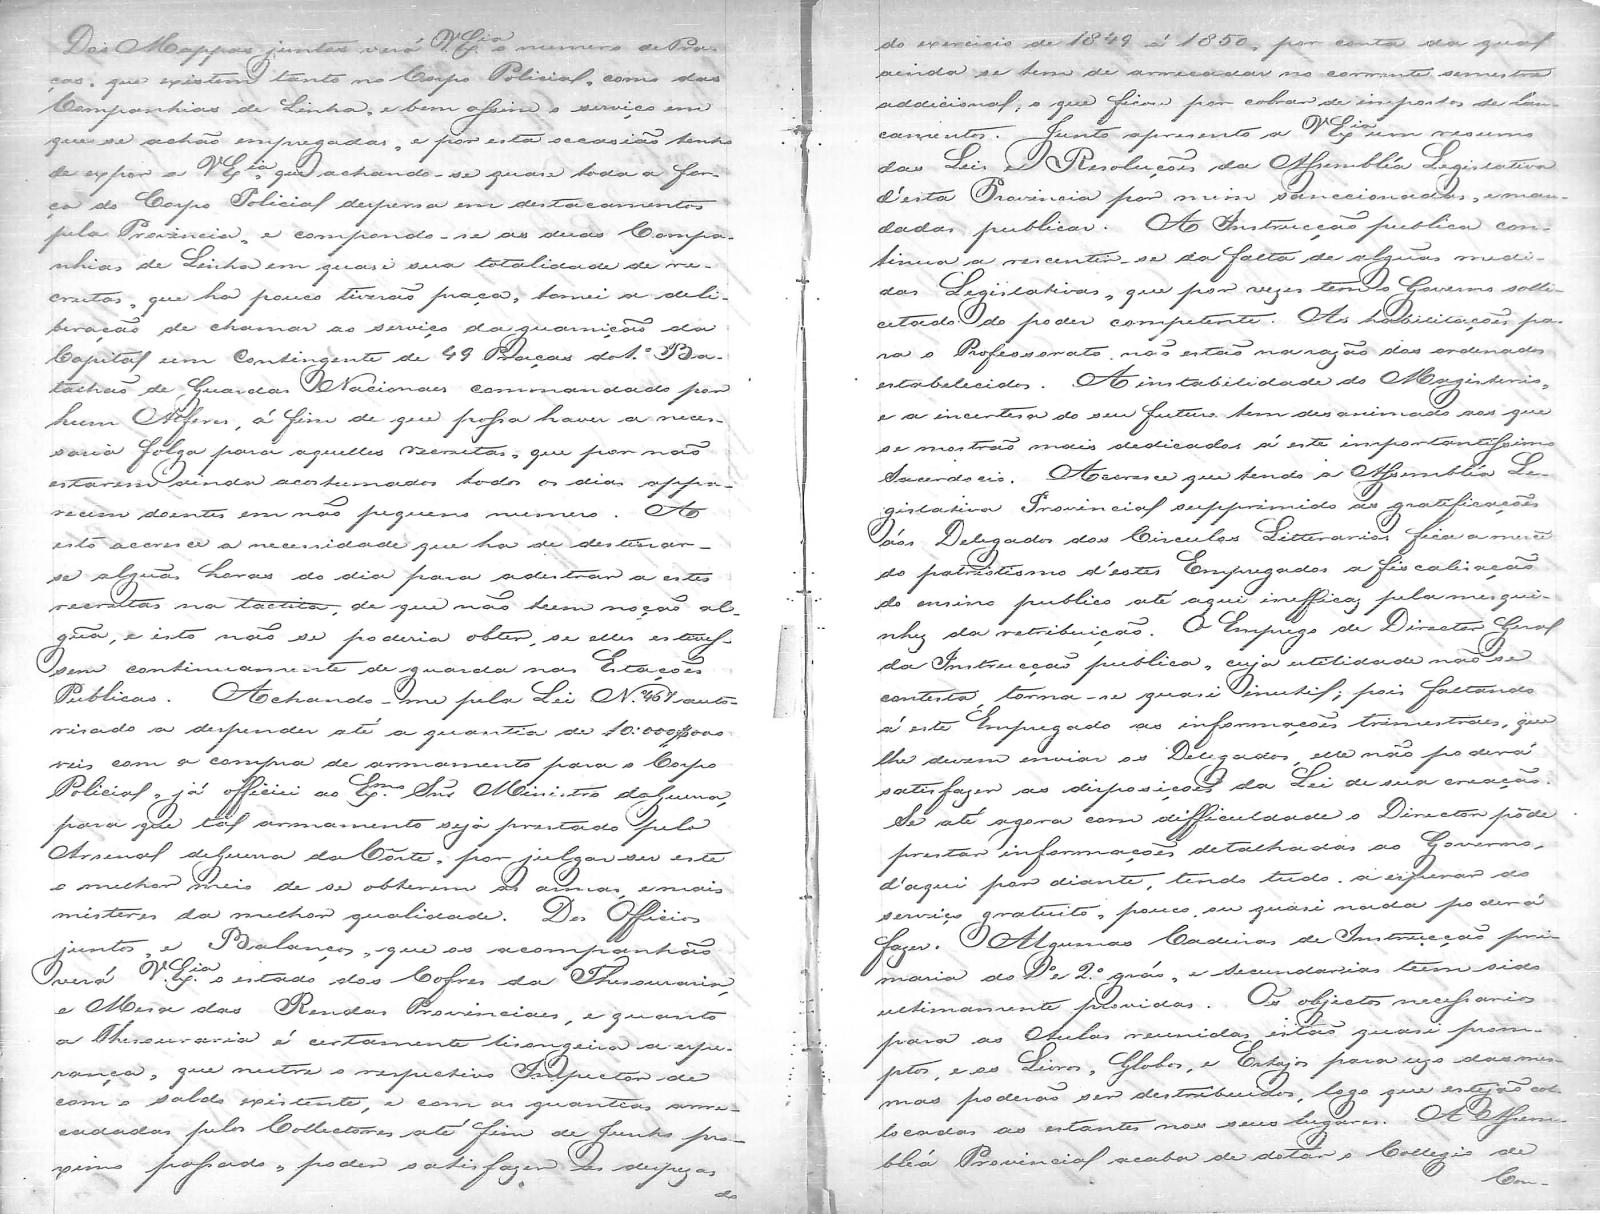 Dos Mappas juntos verá V. Ex.cia o numero de Pra-
ças, que existem tanto no Corpo Policial, como das
Companhias de Linha, e bem assim o serviço em
que se achão empregadas, e por esta occasião tenho
de expor a V. Ex.cia, que achando-se quase toda a for-
ça do Corpo Policial despersa em destacamentos
pela Provincia, e compondo-se as duas Compa-
nhias de Linha em quasi sua totalidade de re-
crutas, que ha pouco tiverão praça, tomei a deli-
beração de chamar ao serviço da guarnição da
Capital um Contingente de 49 Praças do 1.º Ba-
talhão de Guardas Nacionaes commandado por
hum Alferes, á fim de que possa haver a neces-
saria folga para aquelles recrutas, que por não
estarem ainda acostumados todos os dias appa-
recem doentes em não pequeno numero. A
esto accresce a necessidade que ha de destinar-
se alguãs horas do dia para adestrar a estes
recrutas na tactica, de que não teem noção al-
guã, e isto não se poderia obter, se elles estives-
sem continuamente de guarda nas Estações
Publicas. Achando-me pela Lei N.º 467 auto-
risado a despender até a quantia de 10:000$000
reis com a compra de armamento para o Corpo
Policial, já officiei ao Ex.mo Snr Ministro da Guerra,
para que tal armamento seja prestado pelo
Arsenal de Guerra da Côrte, por julgar ser este
o melhor meio de se obterem as armas, e mais
misteres da melhor qualidade. Dos Officios
juntos, e Balanços, que os acompanhão
verá V. Ex.cia o estado dos Cofres da Thesouraria,
e Mesa das Rendas Provinciaes, e quanto
a Thesouraria é certamente lisongeira a espe-
rança, que nutre o respectivo Inspector de
com o saldo existente, e com as quantias arre-
cadadas pelos Collectores até fim de Junho pro-
ximo passado, poder satisfazer as despezas
do
do exercicio de 1849 á 1850, por conta da qual
ainda se tem de arrecadar no corrente semestre
addicional, o que ficou por cobrar de impostos de lan-
camentos. Junto apresento a V. Ex.cia um resumo
das Leis e Resoluções da Assembléa Legislativa
d'esta Provincia por mim sanccionadas, e man-
dadas publicar. A Instrucção publica con-
tinua a rescentir-se da falta de alguãs medi-
das Legislativas, que por vezes tem o Governo solli-
citado do poder competente. As habilitações pa-
ra o Professorato não estão na razão dos ordenados
estabelecidos. A instabilidade do Magisterio,
e a incertesa do seu futuro tem desanimado aos que
se mostrão mais dedicados á este importantissimo
Sacerdocio. Accresce que tendo a Assembléa Le-
gislativa Provincial supprimido as gratificações
aos Delegados dos Circulos Litterarios fica a mercê
do patriotismo d'estes Empregados a fiscalisação
do ensino publico até aqui inefficaz pela mesqui-
nhez da retribuição. O Emprego de Director Geral
da Instrucção publica, cuja utilidade não se
contesta, torna-se quasi inutil; pois faltando
á este Empregado as informações trimestraes, que
lhe devem enviar os Delegados, elle não poderá
satisfazer as disposições da Lei de sua creação.
Se até agora com difficuldade o Director pôde
prestar informações detalhadas ao Governo,
d'aqui por diante, tendo tudo a esperar do
serviço gratuito, pouco, ou quasi nada poderá
fazer. Algumas Cadeiras de Instrucção pri-
maria do 1.º e 2.º gráo, e secundarias teem sido
ultimamente providas. Os objectos necessarios
para as Aulas reunidas, estão quasi prom-
ptos, e os Livros, Globos, e Estojos para uzo das mes-
mas poderão ser destribuidos, logo que estejão col-
locadas as estantes nos seus lugares. A Assem-
bléa Provincial acaba de dotar o Collegio de
Con-